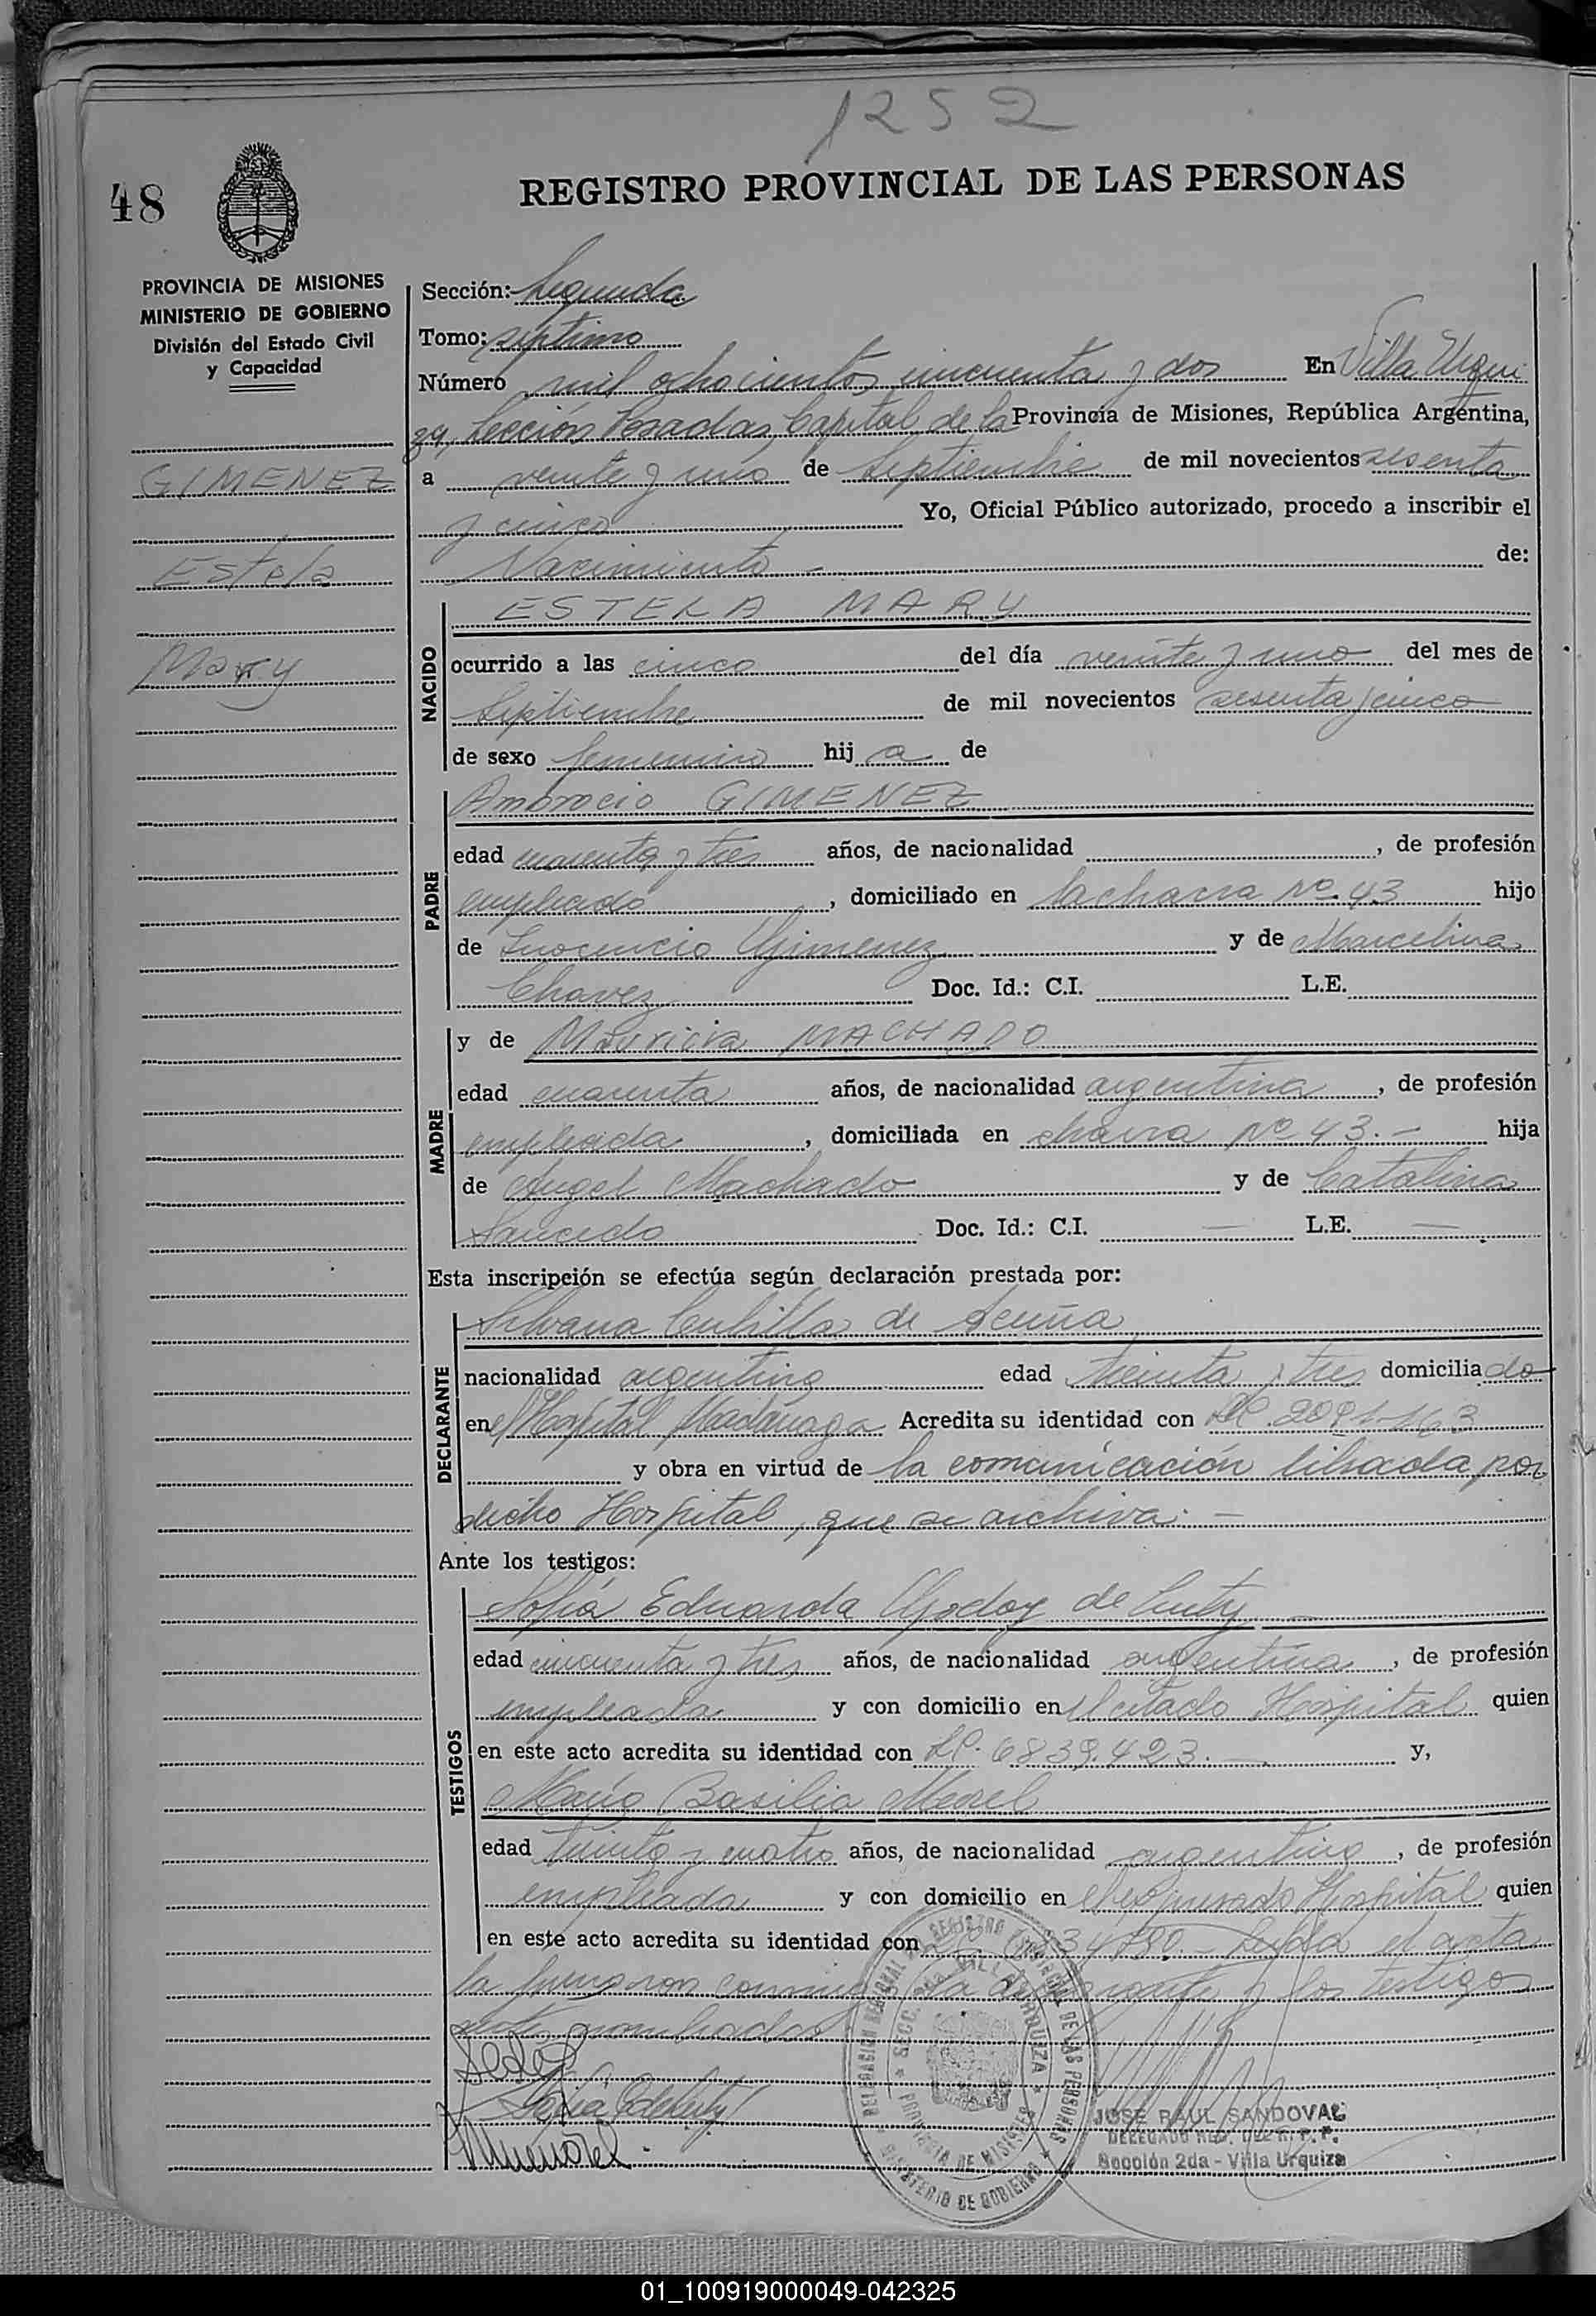 1252
48
REGISTRO PROVINCIAL DE LAS PERSONAS
PROVINCIA DE MISIONES
MINISTERIO DE GOBIERNO
División del Estado Civil
y Capacidad
GIMENEZ
Estela
Mary
Sección: Segunda
Tomo: séptimo
Número mil ochocientos cincuenta y dos En Villa Urqui
za, Sección Posadas, Capital de la Provincia de Misiones, República Argentina,
a veinte y uno de Septiembre de mil novecientos sesenta
y cinco Yo, Oficial Público autorizado, procedo a inscribir el
Nacimiento - de:
NACIDO
ESTELA MARY
ocurrido a las cinco del día veinte y uno del mes de
Septiembre de mil novecientos sesenta y cinco
de sexo femenino hij a de
PADRE
Ambrocio GIMENEZ
edad cuarenta y tres años, de nacionalidad , de profesión
empleado , domiciliado en la chacra Nº 43 hijo
de Inocencio Gimenez y de Marcelina
Chavez Doc. Id.: C.I. L.E.
MADRE
y de Mauricia MACHADO
edad cuarenta años, de nacionalidad argentina , de profesión
empleada , domiciliada en chacra Nº 43. - hija
de Angel Machado y de Catalina
Saucedo Doc. Id.: C.I. — L.E. —
Esta inscripción se efectúa según declaración prestada por:
DECLARANTE
Silvana Cubilla de Acuña
nacionalidad argentina edad treinta y tres domicilia do
en el Hospital Madariaga Acredita su identidad con
y obra en virtud de la comunicación librada por
dicho Hospital, que se archiva. -
Ante los testigos:
TESTIGOS
Sofia Eduarda Godoy de
edad cincuenta y tres años, de nacionalidad argentina , de profesión
empleada y con domicilio en el citado Hospital quien
en este acto acredita su identidad con 6839.423. - y,
Basilia
edad treinta y cuatro años, de nacionalidad argentina , de profesión
empleada y con domicilio en el expresado Hospital quien
en este acto acredita su identidad con Leída el acta
la firmaron conmigo la declarante y los testigos
ante nombrados
REGISTRO PROVINCIAL DE LAS PERSONAS
DELEGACION REGIONAL
SECC. 2da. VILLA URQUIZA
PROVINCIA DE MISIONES
MINISTERIO DE GOBIERNO
JOSE RAUL SANDOVAL
DELEGADO REG. DEL R. P. P.
Sección 2da - Villa Urquiza
01_100919000049-042325